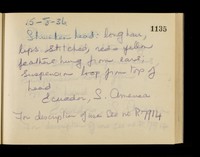 15-5-36
1135
Shrunken head: long hair,
lips stitched, red & yellow
feathers hung from ears,
suspension loop from top of
head
Ecuador, S. America
For description of use see no R